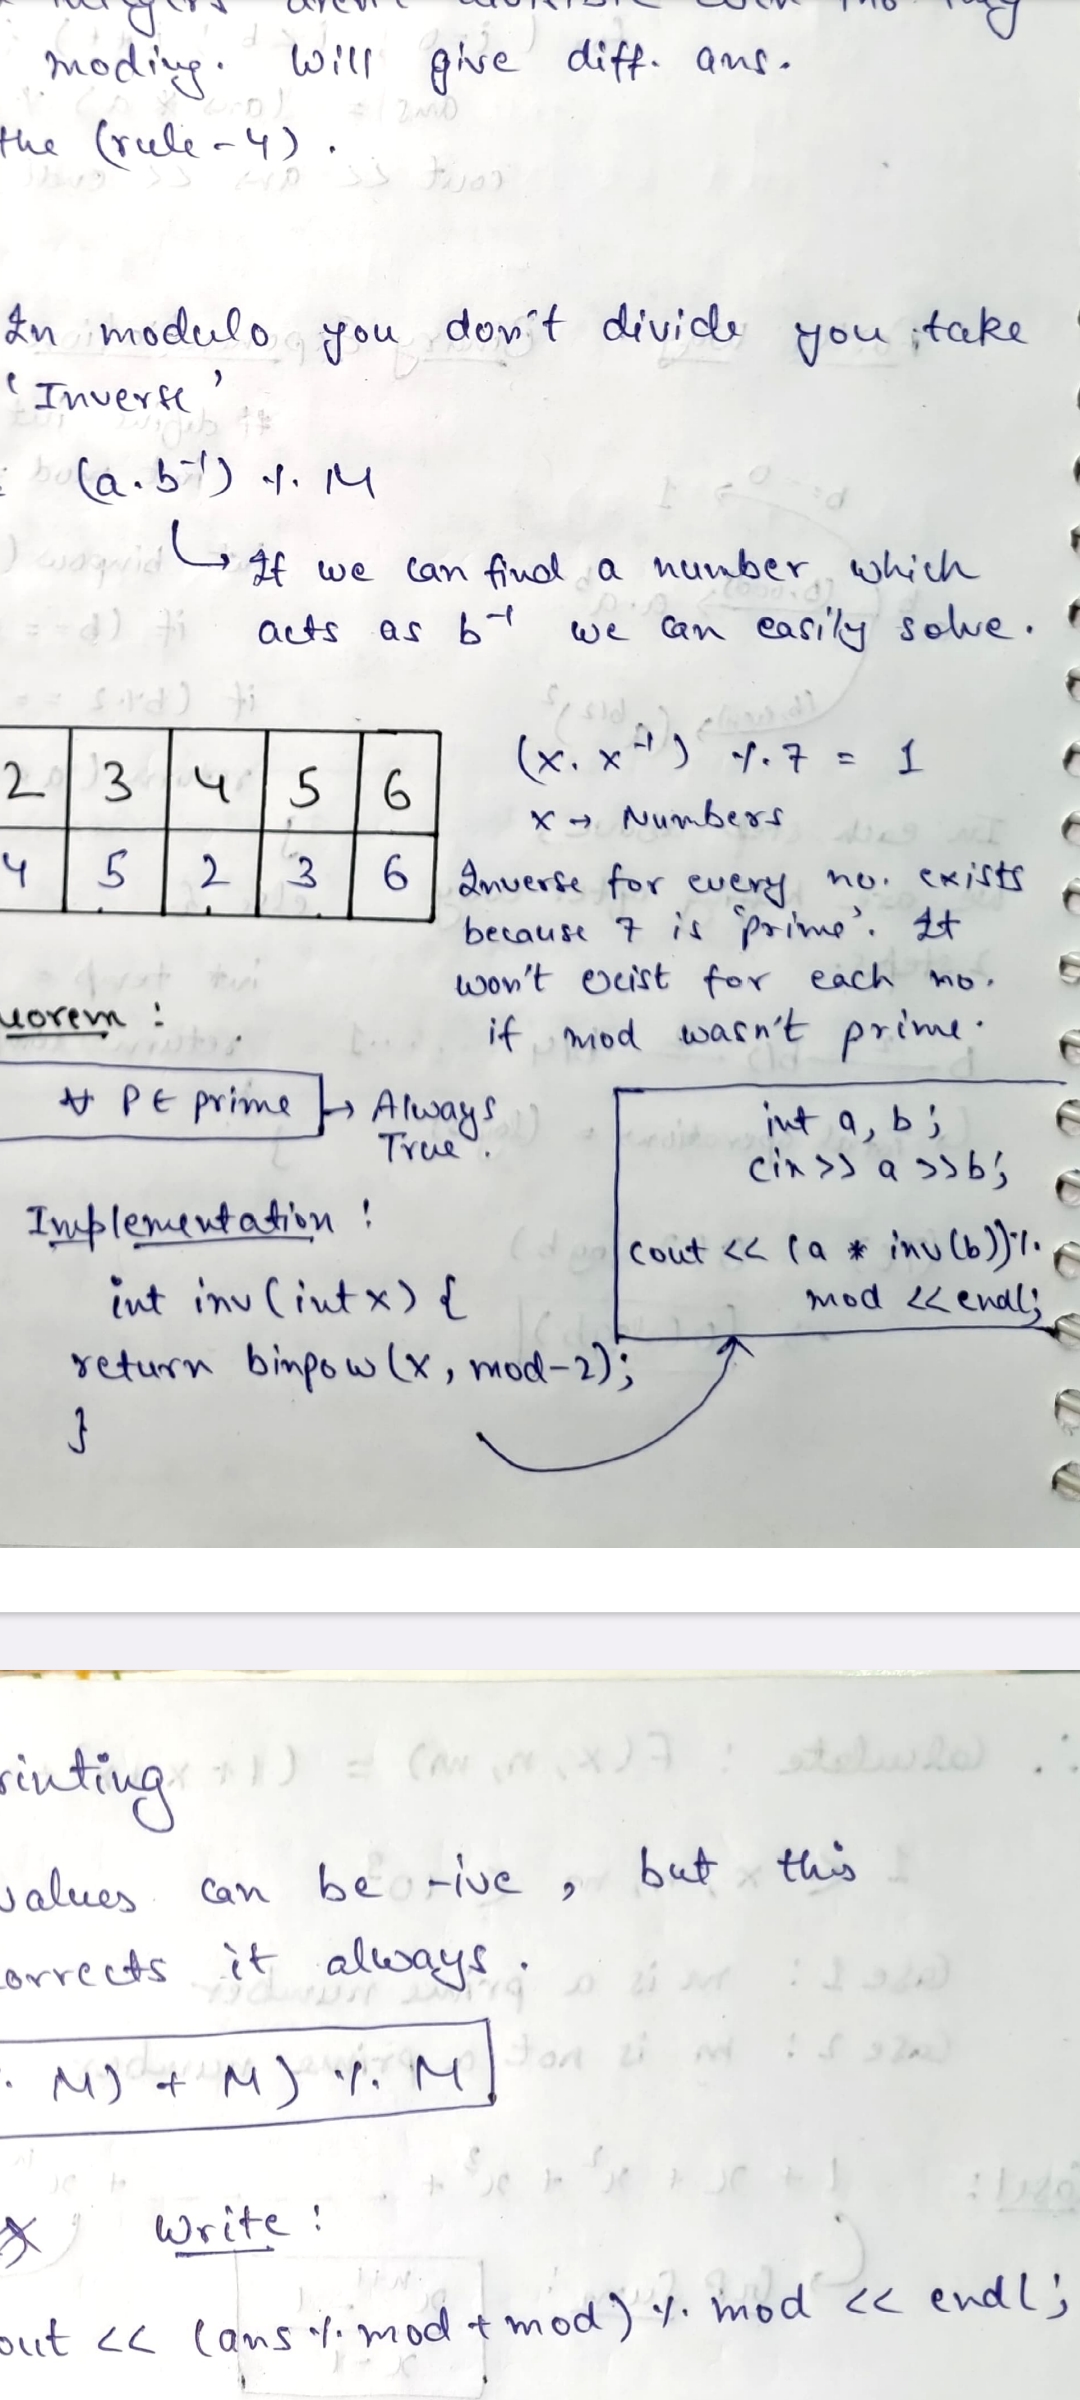 moding. Will give diff. ans.
the (rule-4).
In modulo you don't divide you take
'Inverse'
(a.b⁻¹) % M
↳ If we can find a number which
acts as b⁻¹ we can easily solve.
2 3 4 5 6
4 5 2 3 6
(x. x⁻¹) % 7 = 1
x → Numbers
Inverse for every no. exists
because 7 is 'prime'. It
won't exist for each no.
if mod wasn't prime.
uorem :
∀ P ∈ prime → Always
True.
Implementation :
int inv (int x) {
return binpow (x, mod-2);
}
int a, b;
cin >> a >> b;
cout << (a * inv (b)) %
mod << endl;
rinting
values can be -ive, but this
orrects it always.
M) + M) % M
Write :
out << (ans % mod + mod) % mod << endl;